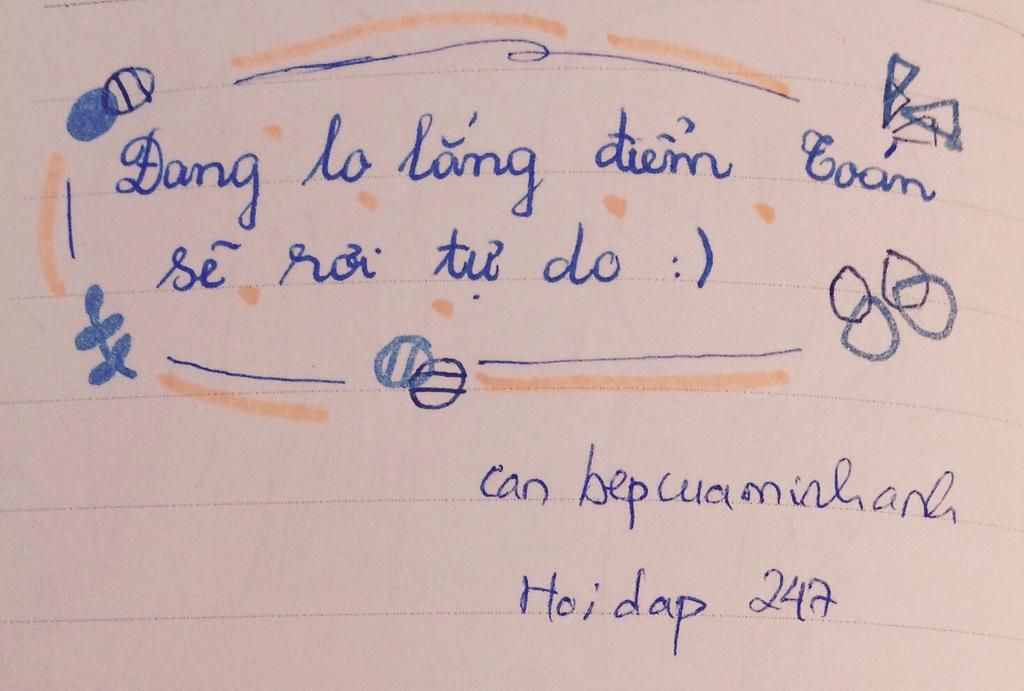 Đang lo lắng điểm Toán
sẽ rơi tự do :)
can bepcuaminhanh
Hoidap 247